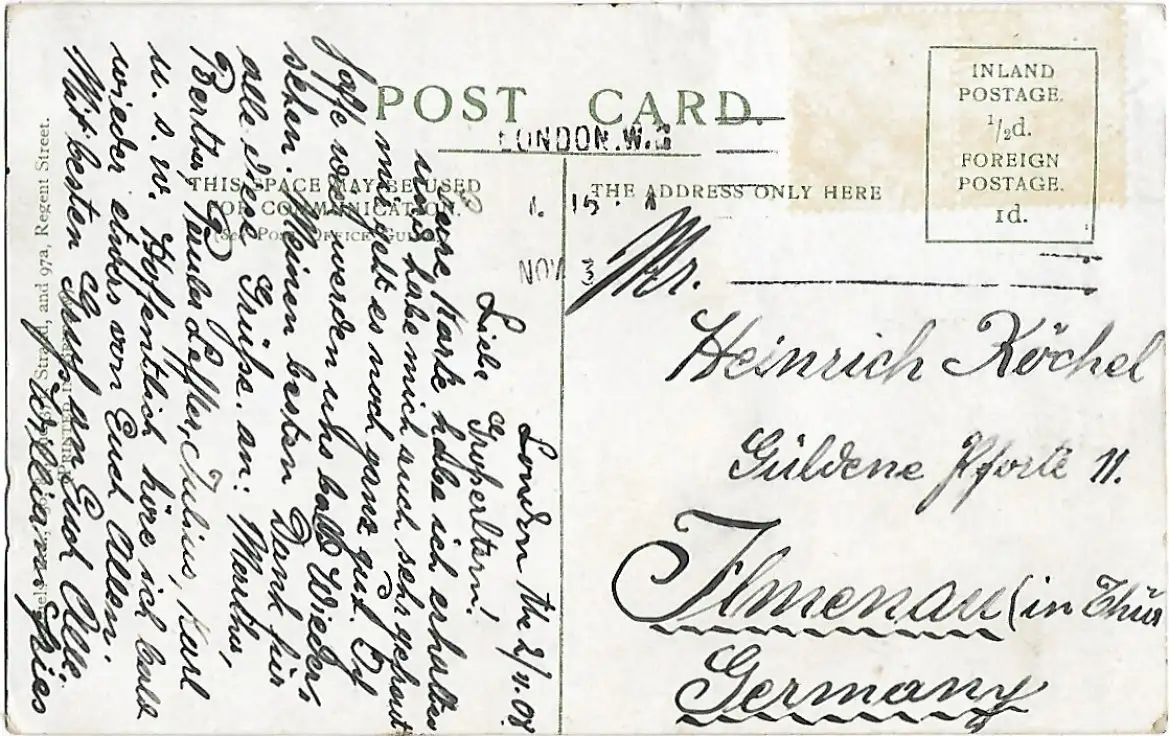 POST CARD.
LONDON. W.
1. 15
NOV 3
THIS SPACE MAY BE USED
FOR COMMUNICATION.
(See Post Office Guide)
THE ADDRESS ONLY HERE
INLAND
POSTAGE.
½d.
FOREIGN
POSTAGE.
1d.
London the 2/11.08.
Liebe Großeltern!
Eure Karte habe ich erhalten
und habe mich auch sehr gefreut
mir geht es noch ganz gut. Ich
hoffe wir werden uns bald Wieder-
sehen. Meinen besten Dank für
alle diese Grüße. an: Martha,
Bertha, Paula Löffler, Julius, Karl
u. s. w. Hoffentlich höre ich bald
wieder etwas von Euch Allen.
Mit besten Gruß an Euch Alle.
William Thies
Mr.
Heinrich Köchel
Güldene Pforte 11.
Ilmenau (in Thür
Germany
Strand, and 97a, Regent Street.